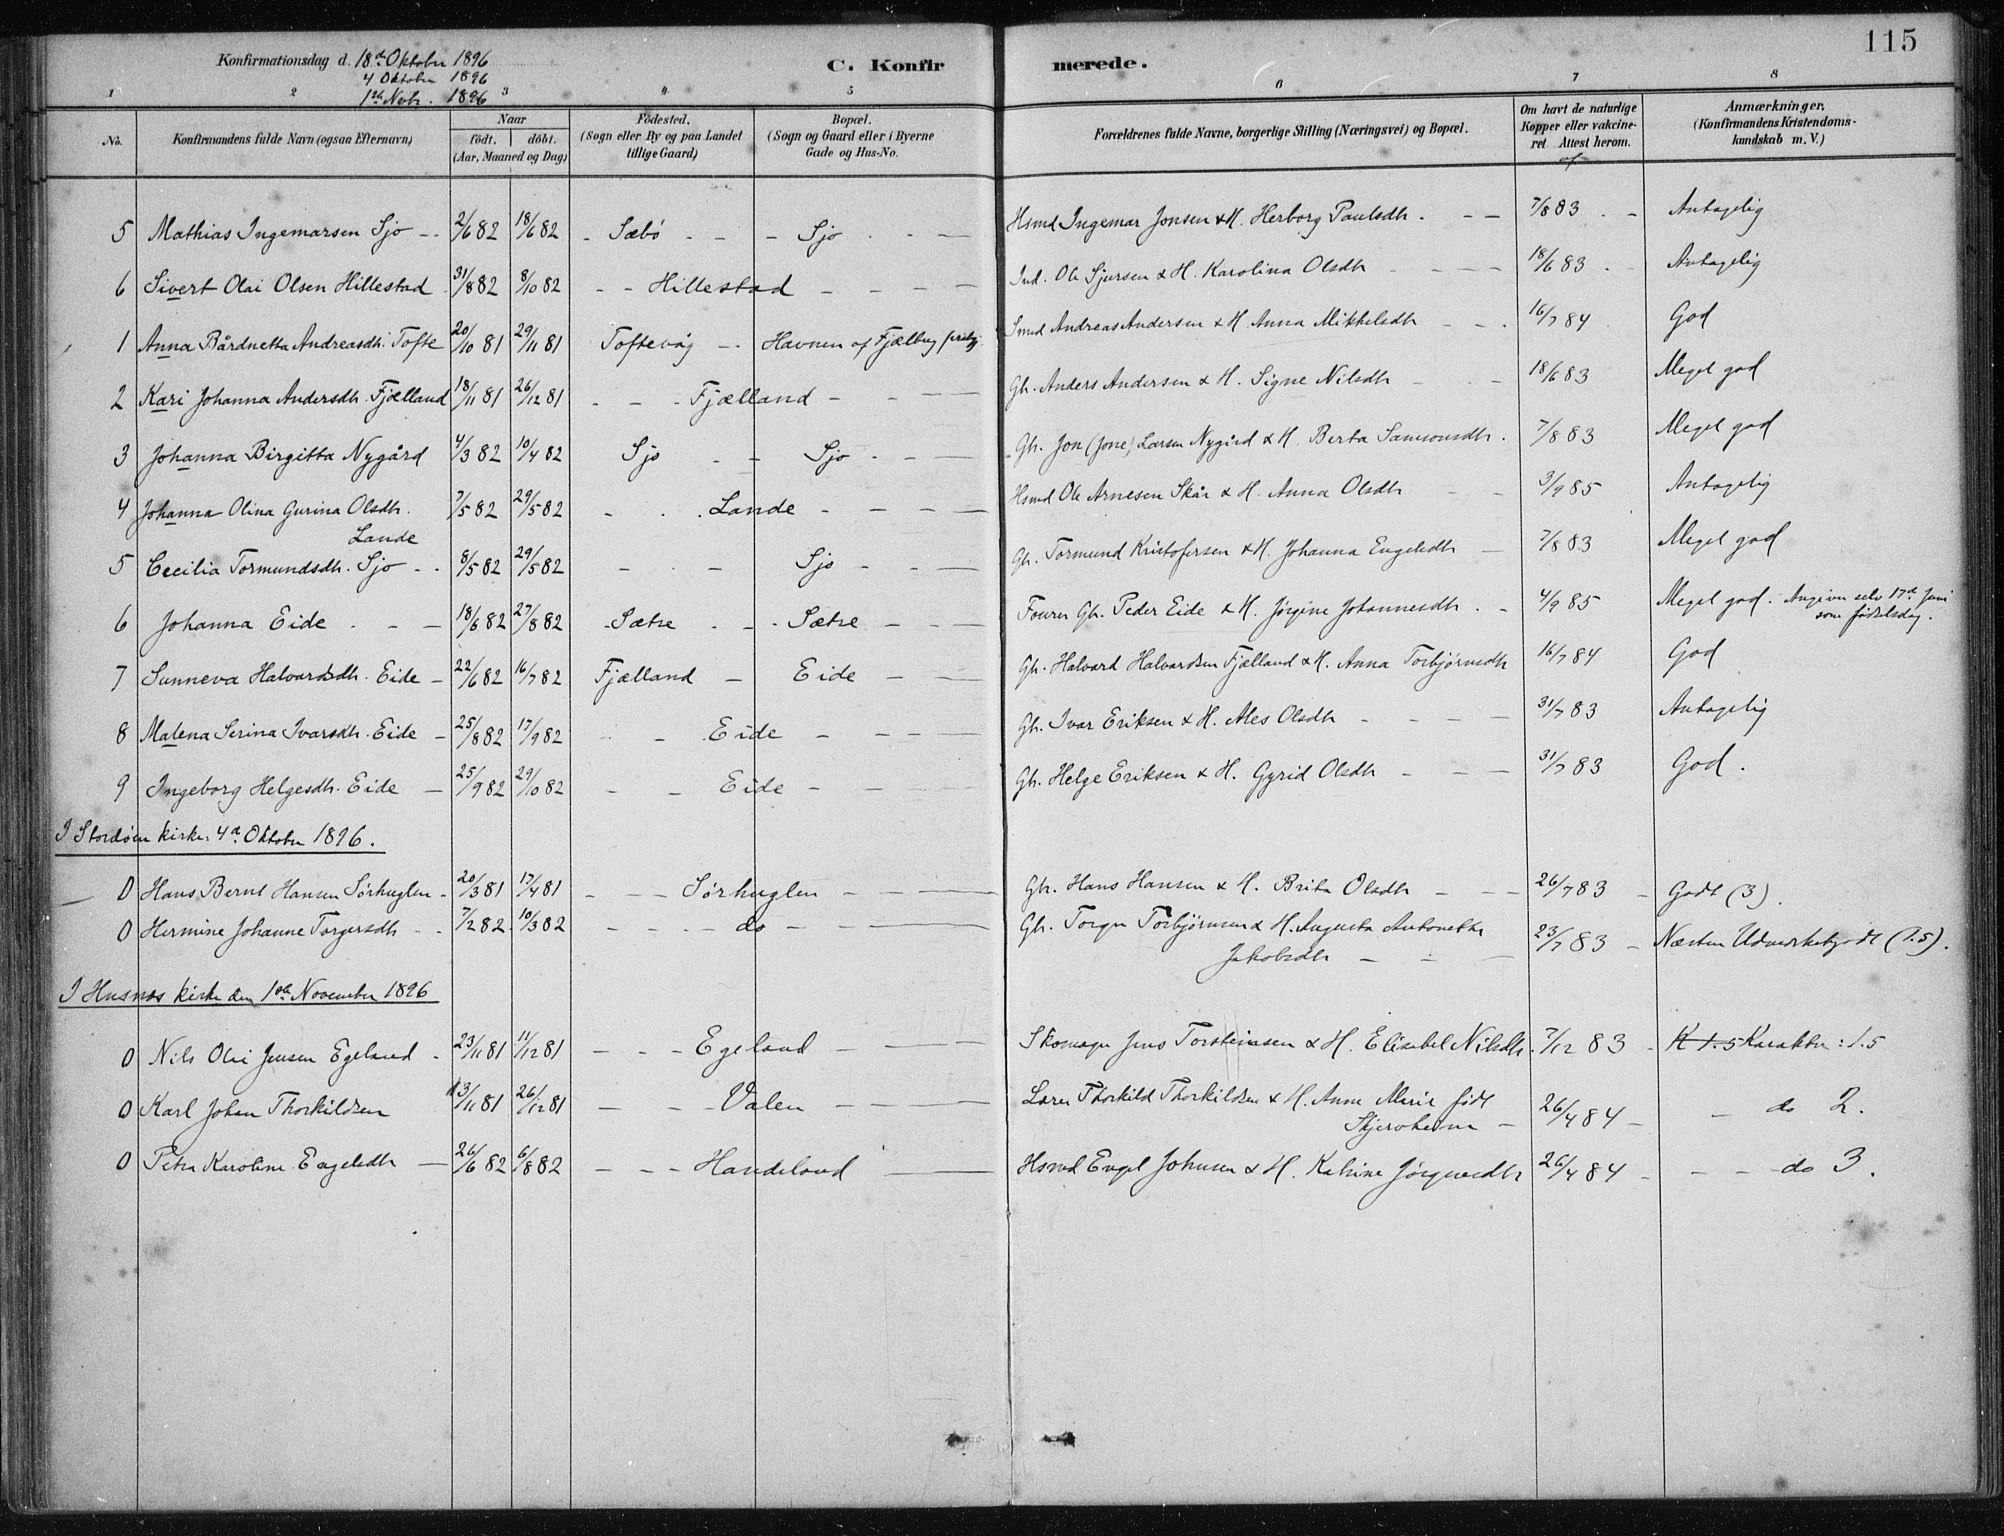 115
Konfirmationsdag d. 18d Oktober 1896
4 Oktober 1896
1ste Novbr. 1896
C. Konfirmerede.
1 2 3 4 5 6 7 8
No. Konfirmandens fulde Navn (ogsaa Efternavn) Naar födt. döbt. (Aar, Maaned og Dag) Födested. (Sogn eller By og paa Landet tillige Gaard) Bopæl. (Sogn og Gaard eller i Byerne Gade og Hus-No. Forældrenes fulde Navne, borgerlige Stilling (Næringsvei) og Bopæl. Om havt de naturlige Kopper eller vakcineret Attest herom. af Anmærkninger. (Konfirmandens Kristendomskundskab m. V.)
5 Mathias Ingemarsen Sjo 2/6 82 18/6 82 Sæbö Sjo Hsmd Ingemar Jonsen & H. Herborg Paulsdtr. 7/8 83 Antagelig
6 Sivert Olai Olsen Hillestad 31/8 82 8/10 82 Hillestad Ind. Ole Sjursen & H. Karolina Olsdtr 18/6 83 Antagelig
1 Anna Bårdnetta Andreasdtr. Tofte 20/10 81 29/11 81 Toftevåg Havnen af Fjælberg Smed Andreas Andersen & H. Anna Mikkelsdtr 16/7 84 God
2 Kari Johanna Andersdtr. Fjælland 18/11 81 26/12 81 Fjælland Gbr. Anders Andersen & H. Signe Nilsdtr 18/6 83 Meget god
3 Johanna Birgitta Nygård 4/3 82 10/4 82 Sjo Sjo Gbr. Jon (Jone) Larsen Nygård & H. Berta Samsonsdtr. 7/8 83 Meget god
4 Johanna Olina Gurina Olsdtr. Lande 7/5 82 29/5 82 Lande Hsmd Ole Arnesen Skår & H. Anna Olsdtr 3/9 85 Antagelig
5 Cecilia Tormundsdtr. Sjo 8/5 82 29/5 82 Sjo Gbr. Tormund Kristofersen & H. Johanna Engelsdtr 7/8 83 Meget god
6 Johanna Eide 18/6 82 27/8 82 Sætre Sætre Fourer Gbr. Peder Eide & H. Jørgine Johannesdtr. 4/9 85 Meget god. Angiver selv 17d Juni som fødselsdag.
7 Sunneva Halvardsdtr. Eide 22/6 82 16/7 82 Fjælland Eide Gbr. Halvard Halvardsen Fjælland & H. Anna Torbjørnsdtr 16/7 84 God
8 Malena Serina Ivarsdtr. Eide 25/8 82 17/9 82 Eide Gbr. Ivar Eriksen & H. Ales Olsdtr 31/7 83 Antagelig
9 Ingeborg Helgesdtr. Eide 25/9 82 29/10 82 Eide Gbr. Helge Eriksen & H. Gyrid Olsdtr 31/7 83 God.
I Stordöen kirke: 4d Oktober 1896.
0 Hans Bernt Hansen Sörhuglen 20/3 81 17/4 81 Sörhuglen Gbr. Hans Hansen & H. Brita Olsdtr 26/7 83 Godt (3).
0 Hermine Johanne Torgersdtr 7/2 82 10/3 82 do Gbr. Torger Torbjørnsen & H. Augusta Antonette Jakobsdtr 23/7 83 Næsten Udmerketgodt (1.5).
I Husnæs kirke den 1ste November 1896
0 Nils Olai Jensen Egeland 23/11 81 11/12 81 Egeland Skomager Jens Torsteinsen & H. Elisabet Nilsdtr. 7/12 83 K 1.5 Karakter: 1.5
0 Karl Johan Thorkildsen 13/11 81 26/12 81 Valen Lærer Thorkild Thorkildsen & H. Anne Marie født 26/4 84 do 2.
0 Petra Karoline Engelsdtr 26/6 82 6/8 82 Handeland Hsmd Engel Johnsen & H. Katrine 26/4 84 do 3.